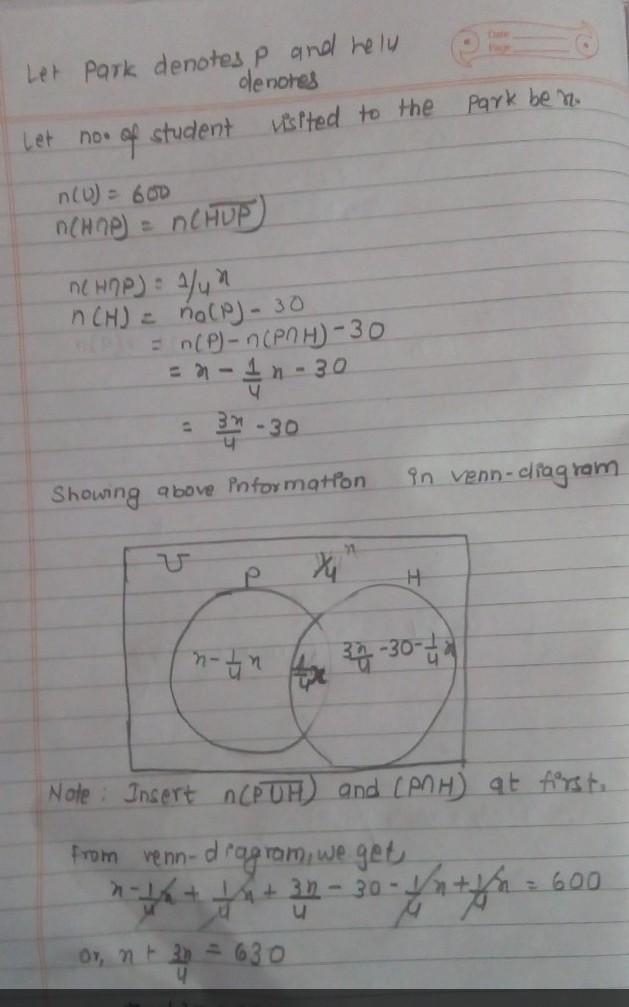 Date
Page
Let Park denotes P and helu
denotes
Let no. of student visited to the park be x.
n(U) = 600
n(H∩P) = n(H̅U̅P̅)
n(H∩P) = 1/4 x
n(H) = n₀(P) - 30
= n(P) - n(P∩H) - 30
= x - 1/4 x - 30
= 3x/4 - 30
Showing above information in venn-diagram
U P 1/4 x H
x - 1/4 x 1/4 x 3x/4 - 30 - 1/4 x
Note: Insert n(P̅U̅H̅) and (P∩H) at first.
From venn-diagram, we get,
x - 1/4 x + 1/4 x + 3x/4 - 30 - 1/4 x + 1/4 x = 600
or, x + 3x/4 = 630